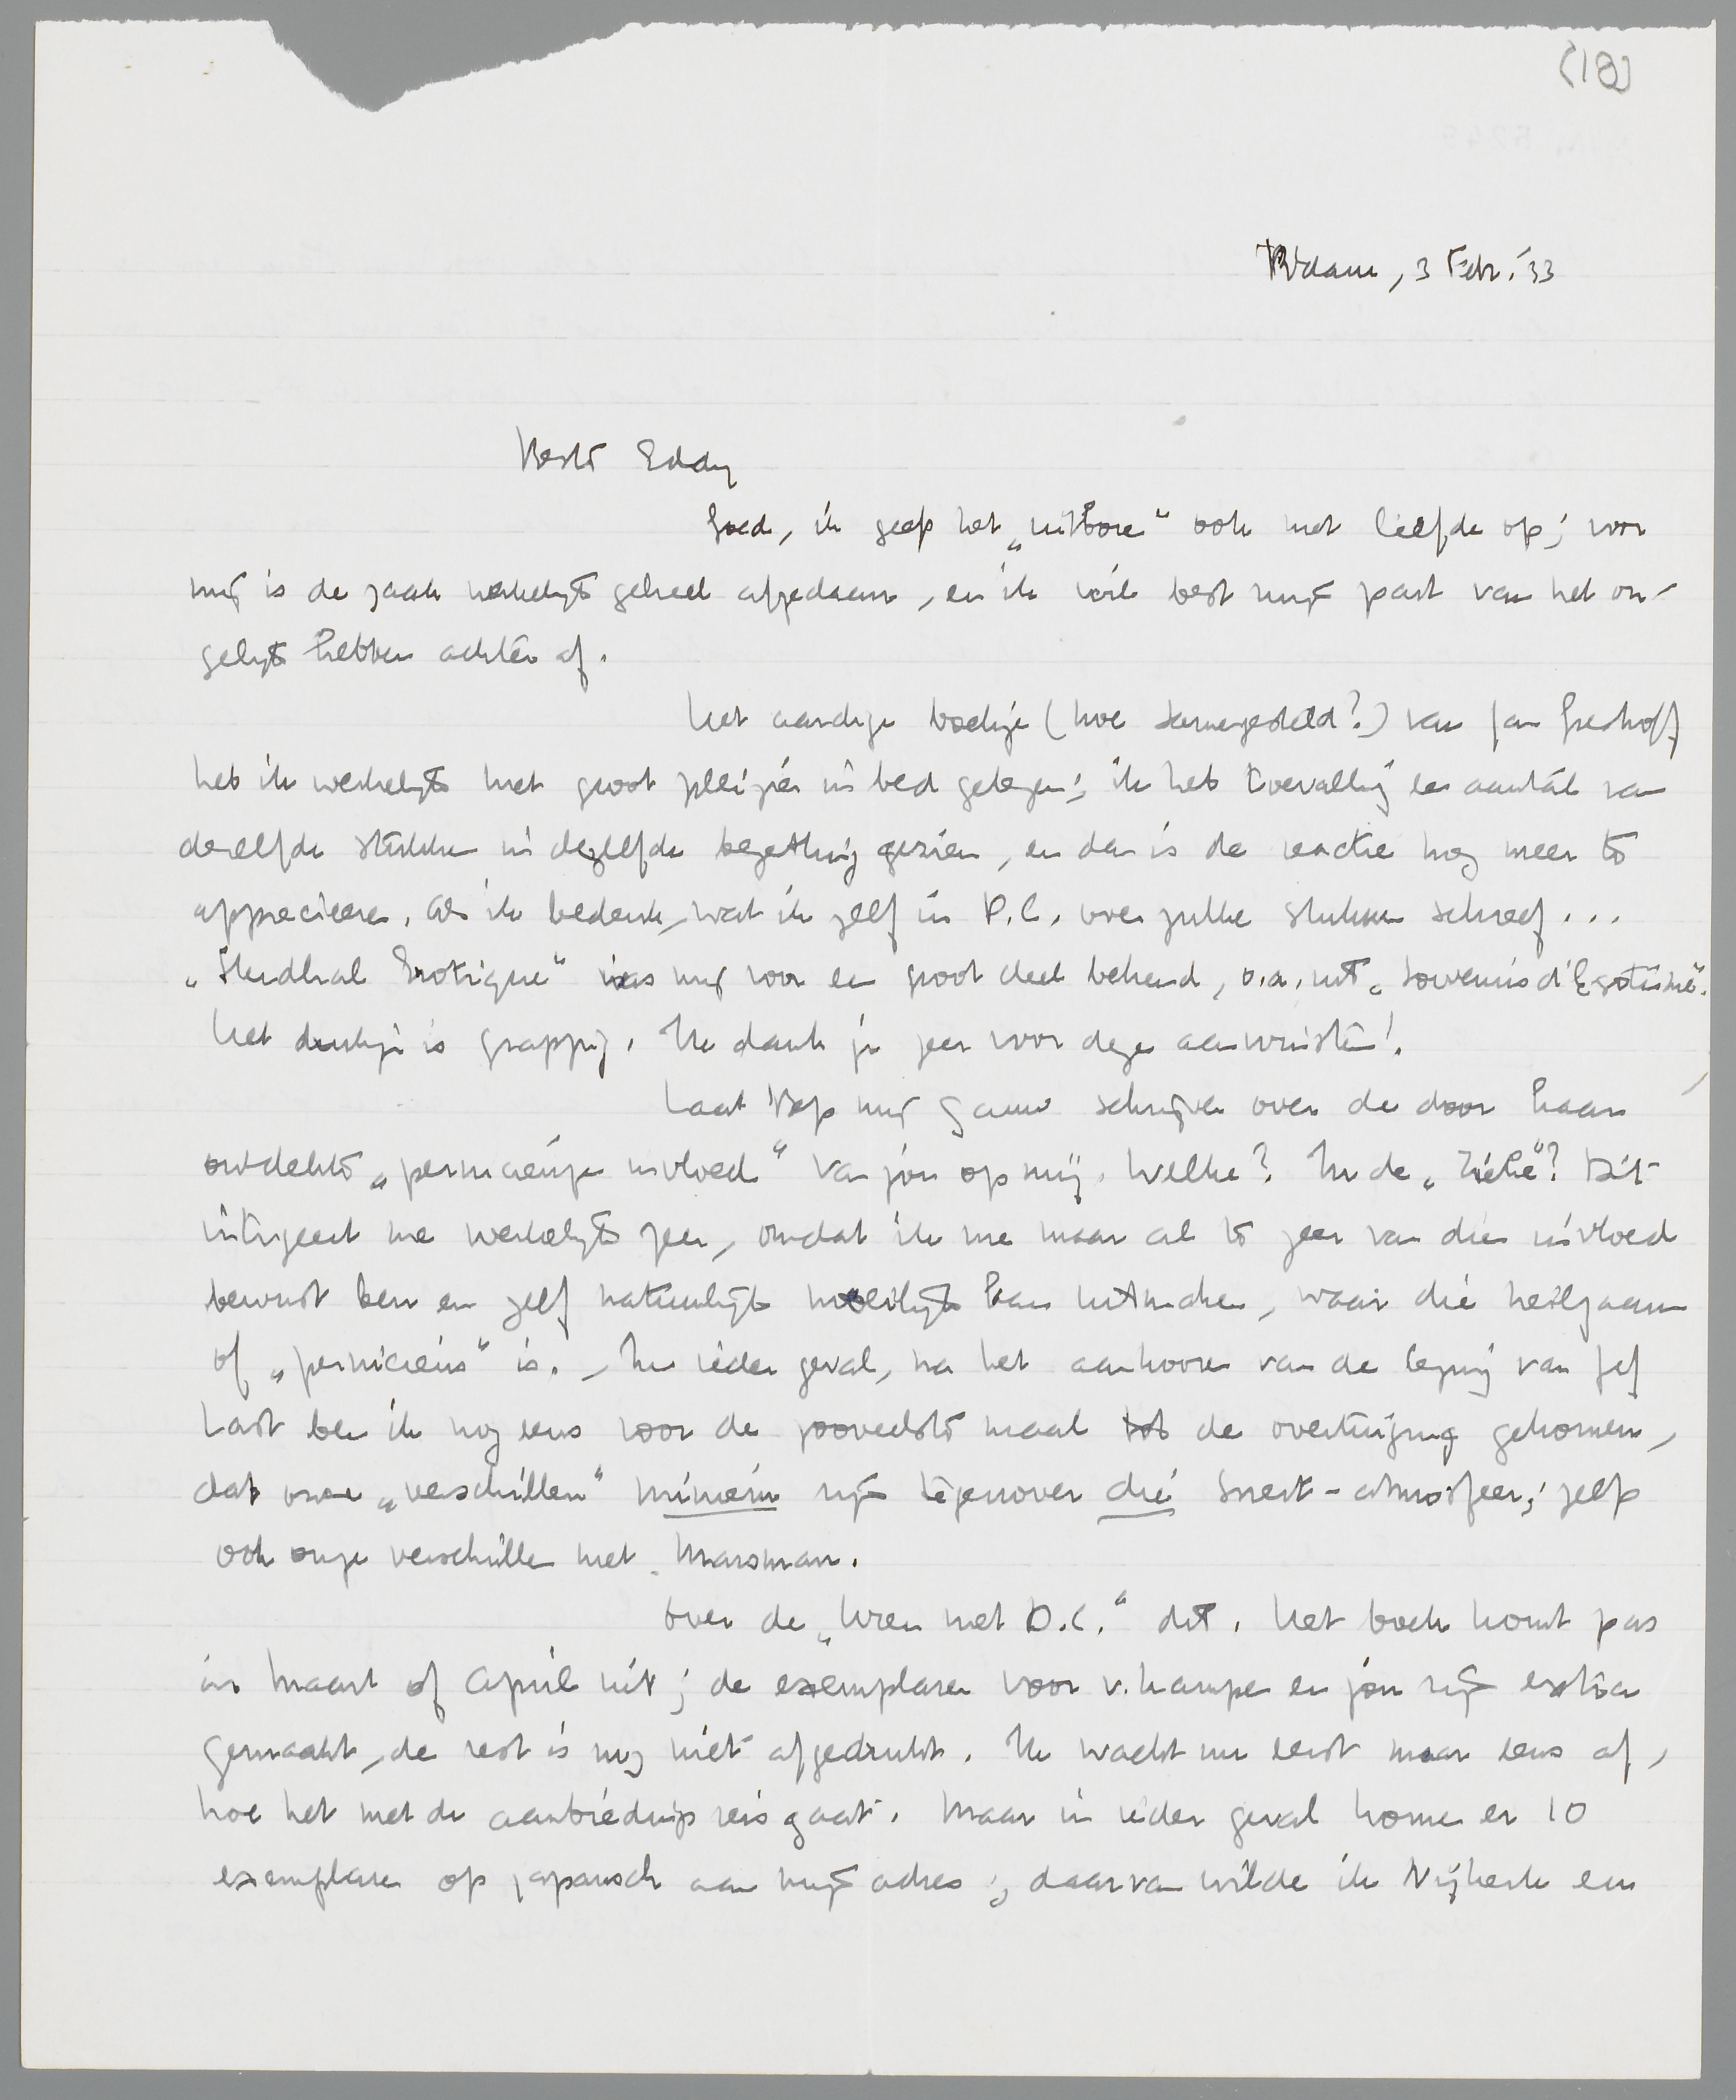 (18)
R'dam, 3 Febr. '33
Beste Eddy
Goed, ik geef het „uitbore" ook met liefde op; voor
mij is de zaak werkelijk geheel afgedaan, en ik wil best mijn part van het on-
gelijk hebben achter af.
Het aardige boekje (hoe samengesteld?) van Jan Greshoff
heb ik werkelijk met groot pleizier in bed gelezen; ik heb toevallig een aantal van
dezelfde stukken in dezelfde bezetting gezien, en dan is de reactie nog meer te
apprecieeren. Als ik bedenk, wat ik zelf in D.C. over zulke stukken schreef...
„Stendhal Erotique" was mij voor een groot deel bekend, o.a. uit „Souvenirs d'Egotisme".
Het drukje is grappig. Ik dank je zeer voor deze aanwinsten!
Laat Bep mij gauw schrijven over de door haar
ontdekte „pernicieuze invloed" van jou op mij. Welke? In de „Ziehe"? Dit
intrigeert me werkelijk zeer, omdat ik me maar al te zeer van die invloed
bewust ben en zelf natuurlijk moeilijk kan uitmaken, waar die heilzaam
of „pernicieus" is. – In ieder geval, na het aanhooren van de lezing van Jef
Last ben ik nog eens voor de zooveelste maal tot de overtuiging gekomen,
dat onze „verschillen" miniem zijn tegenover die snert-atmosfeer; zelfs
ook onze verschillen met Marsman.
Over de „Uren met D.C." dit. Het boek komt pas
in Maart of April uit; de exemplaren voor v. Kampen en jou zijn extra
gemaakt, de rest is nog niet afgedrukt. Ik wacht nu eerst maar eens af,
hoe het met de aanbiedingsreis gaat. Maar in ieder geval komen er 10
exemplaren op japansch aan mijn adres; daarvan wilde ik Nijkerk een